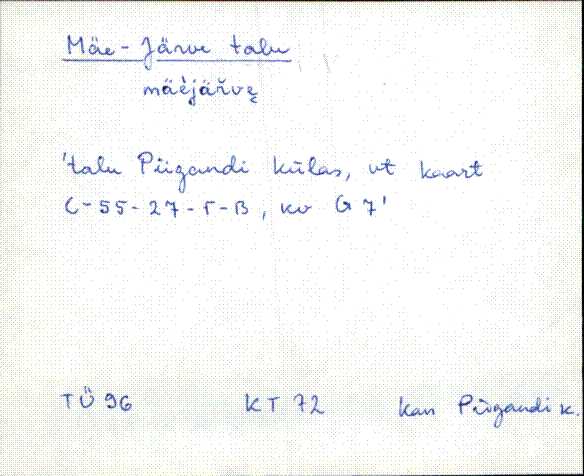 Mäe-Järve talu
mäèjäŕvę
'talu Piigandi külas, vt kaart
C-55-27-Г-В, kv G7'
TÜ 96 KT 72 Kan Piigandi k.